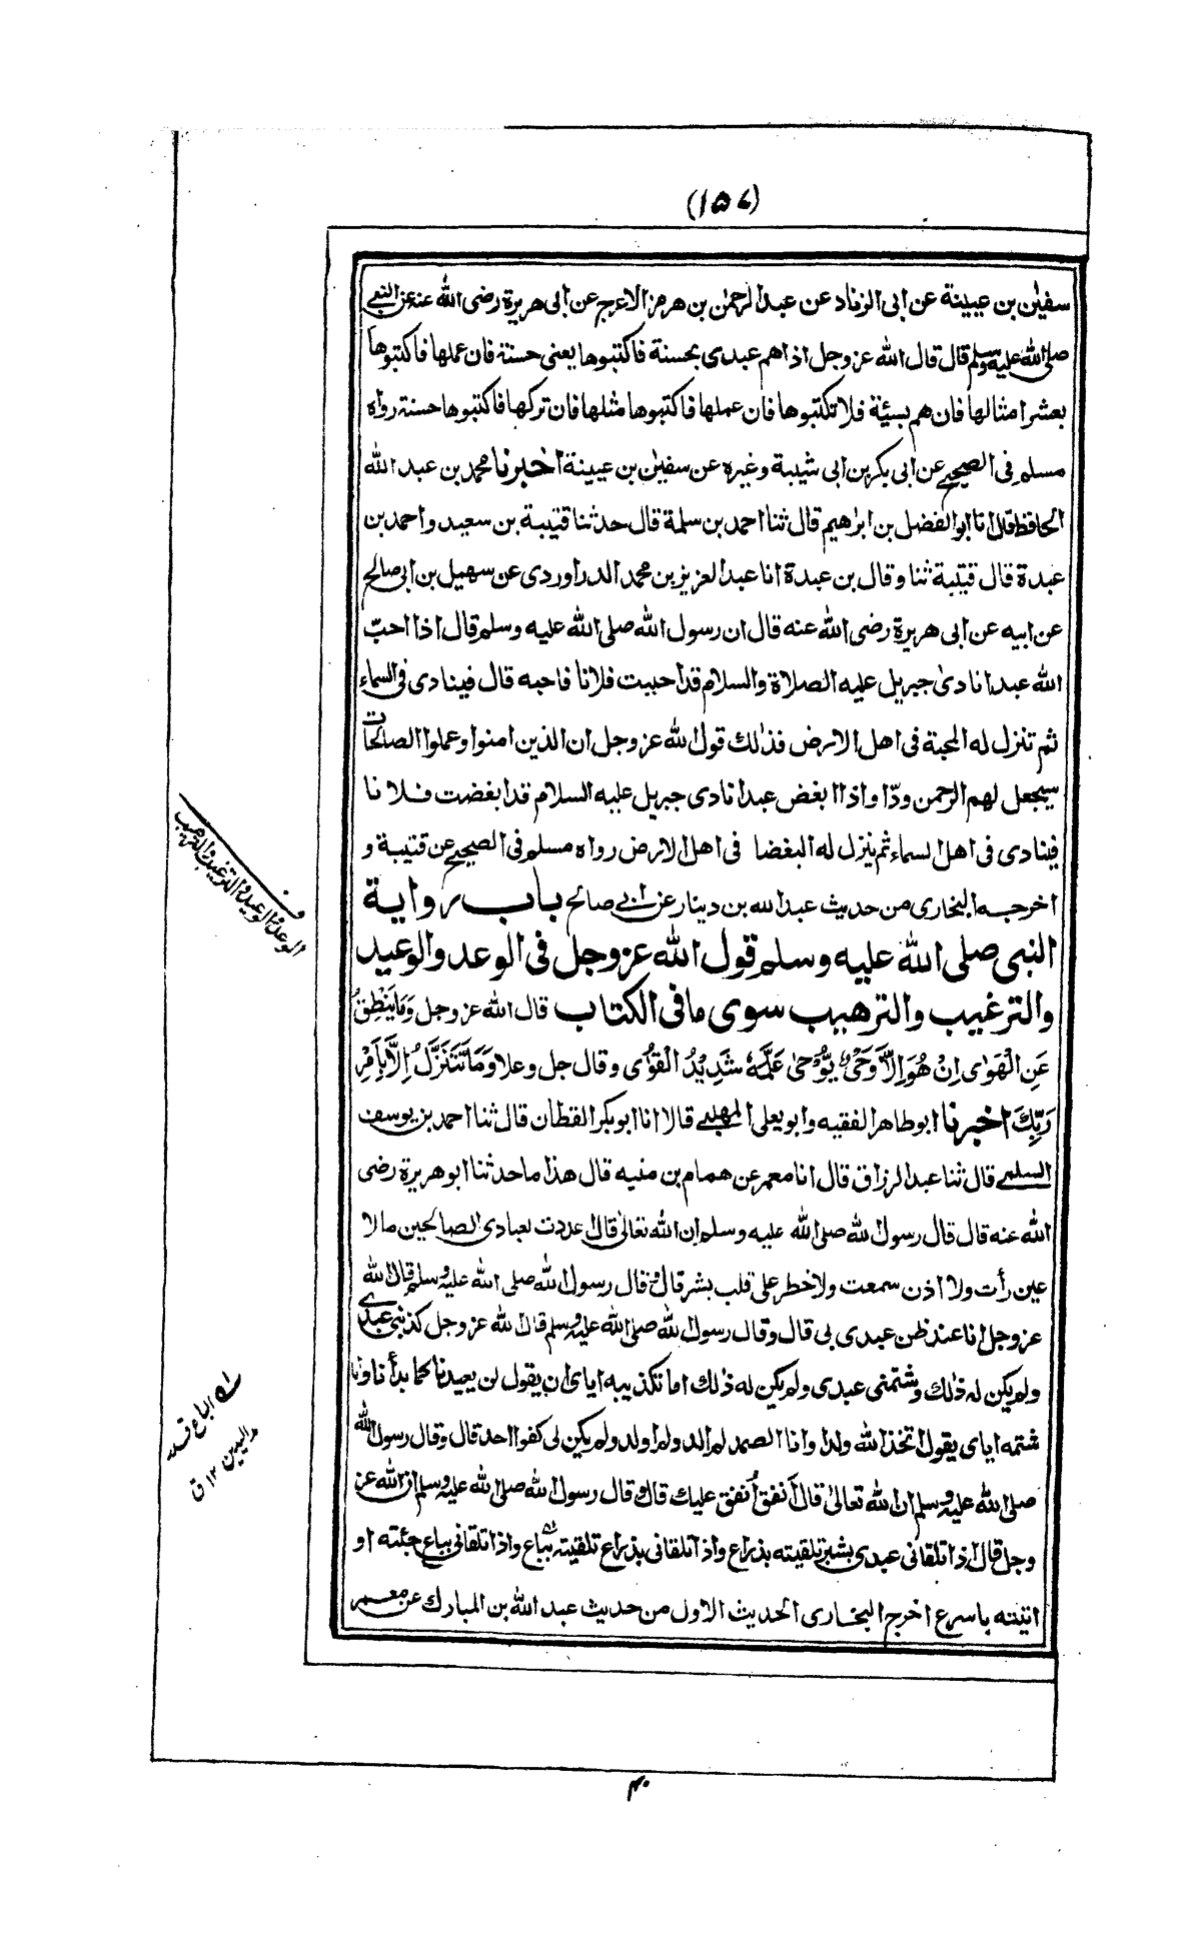 (١٥٧)
سفين بن عيينة عن ابى الزناد عن عبد الرحمن بن هرمز الاعرج عن ابى هريرة رضى الله عنه عن النبى
صلى الله عليه وسلم قال قال الله عز وجل اذا هم عبدى بحسنة فاكتبوها يعنى حسنة فان عملها فاكتبوها
بعشر امثالها فان هم بسيئة فلا تكتبوها فان عملها فاكتبوها مثلها فان تركها فاكتبوها حسنة رواه
مسلم فى الصحيح عن ابى بكر بن ابى شيبة وغيره عن سفين بن عيينة اخبرنا محمد بن عبد الله
الحافظ قال انا ابو الفضل بن ابرهيم قال ثنا احمد بن سلمة قال حدثنا قتيبة بن سعيد واحمد بن
عبدة قال قتيبة ثنا وقال بن عبدة انا عبد العزيز بن محمد الدراوردى عن سهيل بن ابى صالح
عن ابيه عن ابى هريرة رضى الله عنه قال ان رسول الله صلى الله عليه وسلم قال اذا احبّ
الله عبدا نادى جبريل عليه الصلاة والسلام قد احببت فلانا فاحبه قال فينادى فى السماء
ثم تنزل له المحبة فى اهل الارض فذلك قول الله عز وجل ان الذين امنوا وعملوا الصالحات
سيجعل لهم الرحمن ودّا واذا ابغض عبدا نادى جبريل عليه السلام قد ابغضت فلانا
فينادى فى اهل السماء ثم ينزل له البغضا فى اهل الارض رواه مسلم فى الصحيح عن قتيبة و
اخرجه البخارى من حديث عبد الله بن دينار عن ابى صالح باب رواية
النبى صلى الله عليه وسلم قول الله عز وجل فى الوعد والوعيد
والترغيب والترهيب سوى ما فى الكتاب قال الله عز وجل وَمَا يَنْطِقُ
عَنِ الْهَوٰى اِنْ هُوَ اِلَّا وَحْىٌ يُّوْحٰى عَلَّمَهٗ شَدِيْدُ الْقُوٰى وقال جل وعلا وَمَا نَتَنَزَّلُ اِلَّا بِاَمْرِ
رَبِّكَ اخبرنا ابو طاهر الفقيه وابو يعلى المهلبى قالا انا ابو بكر القطان قال ثنا احمد بن يوسف
السلمى قال ثنا عبد الرزاق قال انا معمر عن همام بن منبه قال هذا ما حدثنا ابو هريرة رضى
الله عنه قال قال رسول الله صلى الله عليه وسلم ان الله تعالى قال اعددت لعبادى الصالحين ما لا
عين رأت ولا اذن سمعت ولا خطر على قلب بشر قال وقال رسول الله صلى الله عليه وسلم قال الله
عز وجل انا عند ظن عبدى بى قال وقال رسول الله صلى الله عليه وسلم قال الله عز وجل كذبنى عبدى
ولم يكن له ذلك وشتمنى عبدى ولم يكن له ذلك اما تكذيبه اياى ان يقول لن يعيدنا كما بدأنا واما
شتمه اياى يقول اتخذ الله ولدا وانا الصمد لم الد ولم اولد ولم يكن لى كفوا احد قال وقال رسول الله
صلى الله عليه وسلم ان الله تعالى قال أنفق أُنفق عليك قال وقال رسول الله صلى الله عليه وسلم ان الله عز
وجل قال اذا تلقانى عبدى بشبر تلقيته بذراع واذا تلقانى بذراع تلقيته بباع واذا تلقانى بباع جئته او
اتيته باسرع اخرج البخارى الحديث الاول من حديث عبد الله بن المبارك عن معمر
ف
الوعد والوعيد والترغيب والترهيب
الباع قدر
مد اليدين ١٢ ق